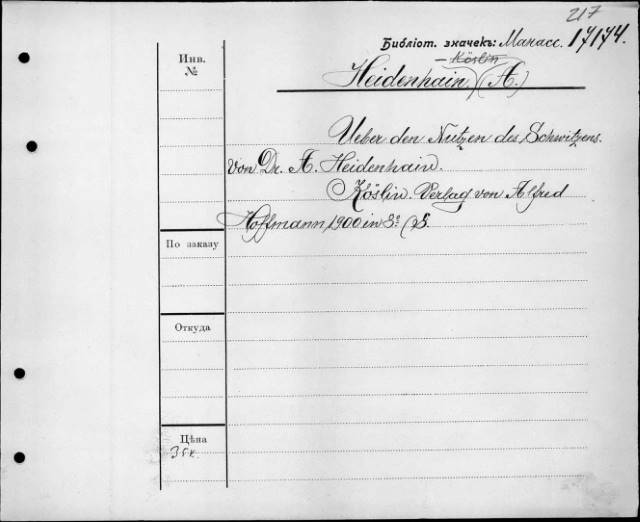 217
Библіот. значекъ: Марасс. 17174.
Инв.
№
Köslin
Heidenhain. (A.)
Ueber den Nutzen des Schwitzens.
Von Dr. A. Heidenhain.
Köslin. Verlag von Alfred
Hoffmann, 1900 in 8º
По заказу
Откуда
Цѣна
35 к.